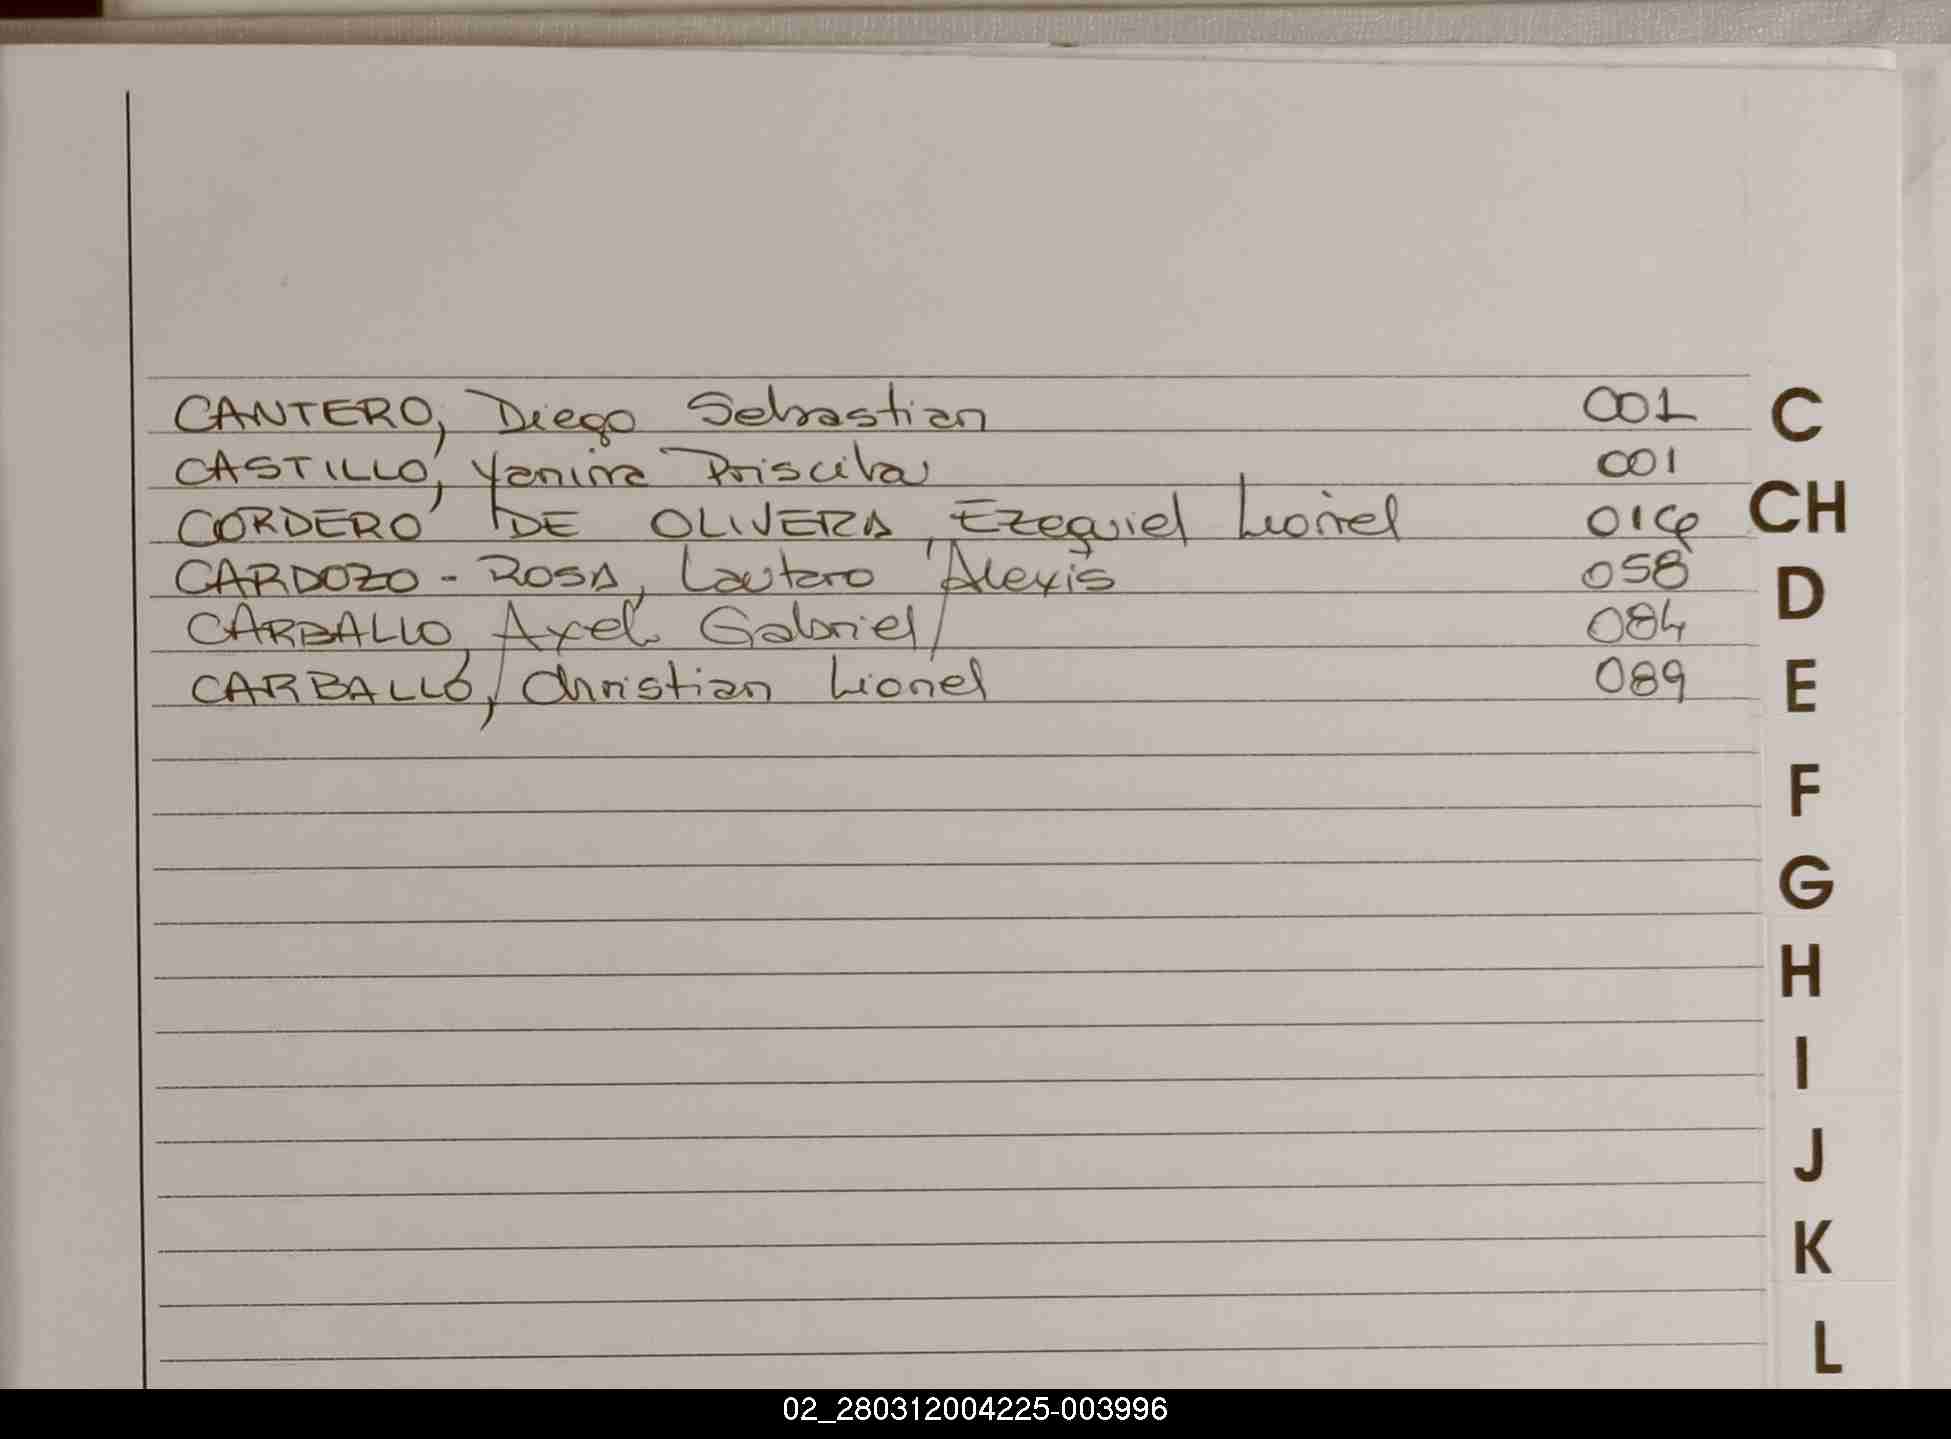 CANTERO, Diego Sebastian 001
CASTILLO, Yanina Priscila 001
CORDERO DE OLIVERA, Ezequiel Lionel
CARDOZO - ROSA, Lautaro Alexis 058
CARBALLO, Axel Gabriel 084
CARBALLO, Christian Lionel 089
C
CH
D
E
F
G
H
I
J
K
L
02_280312004225-003996